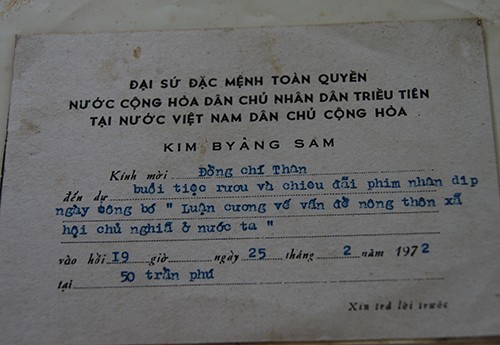 ĐẠI SỨ ĐẶC MỆNH TOÀN QUYỀN
NƯỚC CỘNG HÒA DÂN CHỦ NHÂN DÂN TRIỀU TIÊN
TẠI NƯỚC VIỆT NAM DÂN CHỦ CỘNG HÒA
KIM BYẢNG SAM
Kính mời Đồng chí Thân
đến dự buổi tiệc rươu và chiêu đãi phim nhân dịp
ngày công bố " Luận cương về vấn đề nông thôn xã
hội chủ nghiã ở nước ta "
vào hồi I9 giờ ngày 25 tháng 2 năm 1972
tại 50 trần phú
Xin trả lời trước